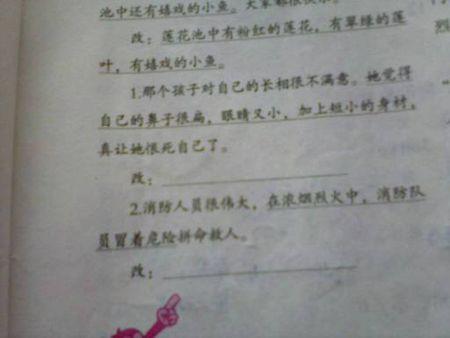 池中还有嬉戏的小鱼。大家都很快乐。
改：莲花池中有粉红的莲花，有翠绿的莲
叶，有嬉戏的小鱼。
1.那个孩子对自己的长相很不满意。她觉得
自己的鼻子很扁，眼睛又小，加上短小的身材，
真让她恨死自己了。
改：
2.消防人员很伟大，在浓烟烈火中，消防队
员冒着危险拼命救人。
改：
烈